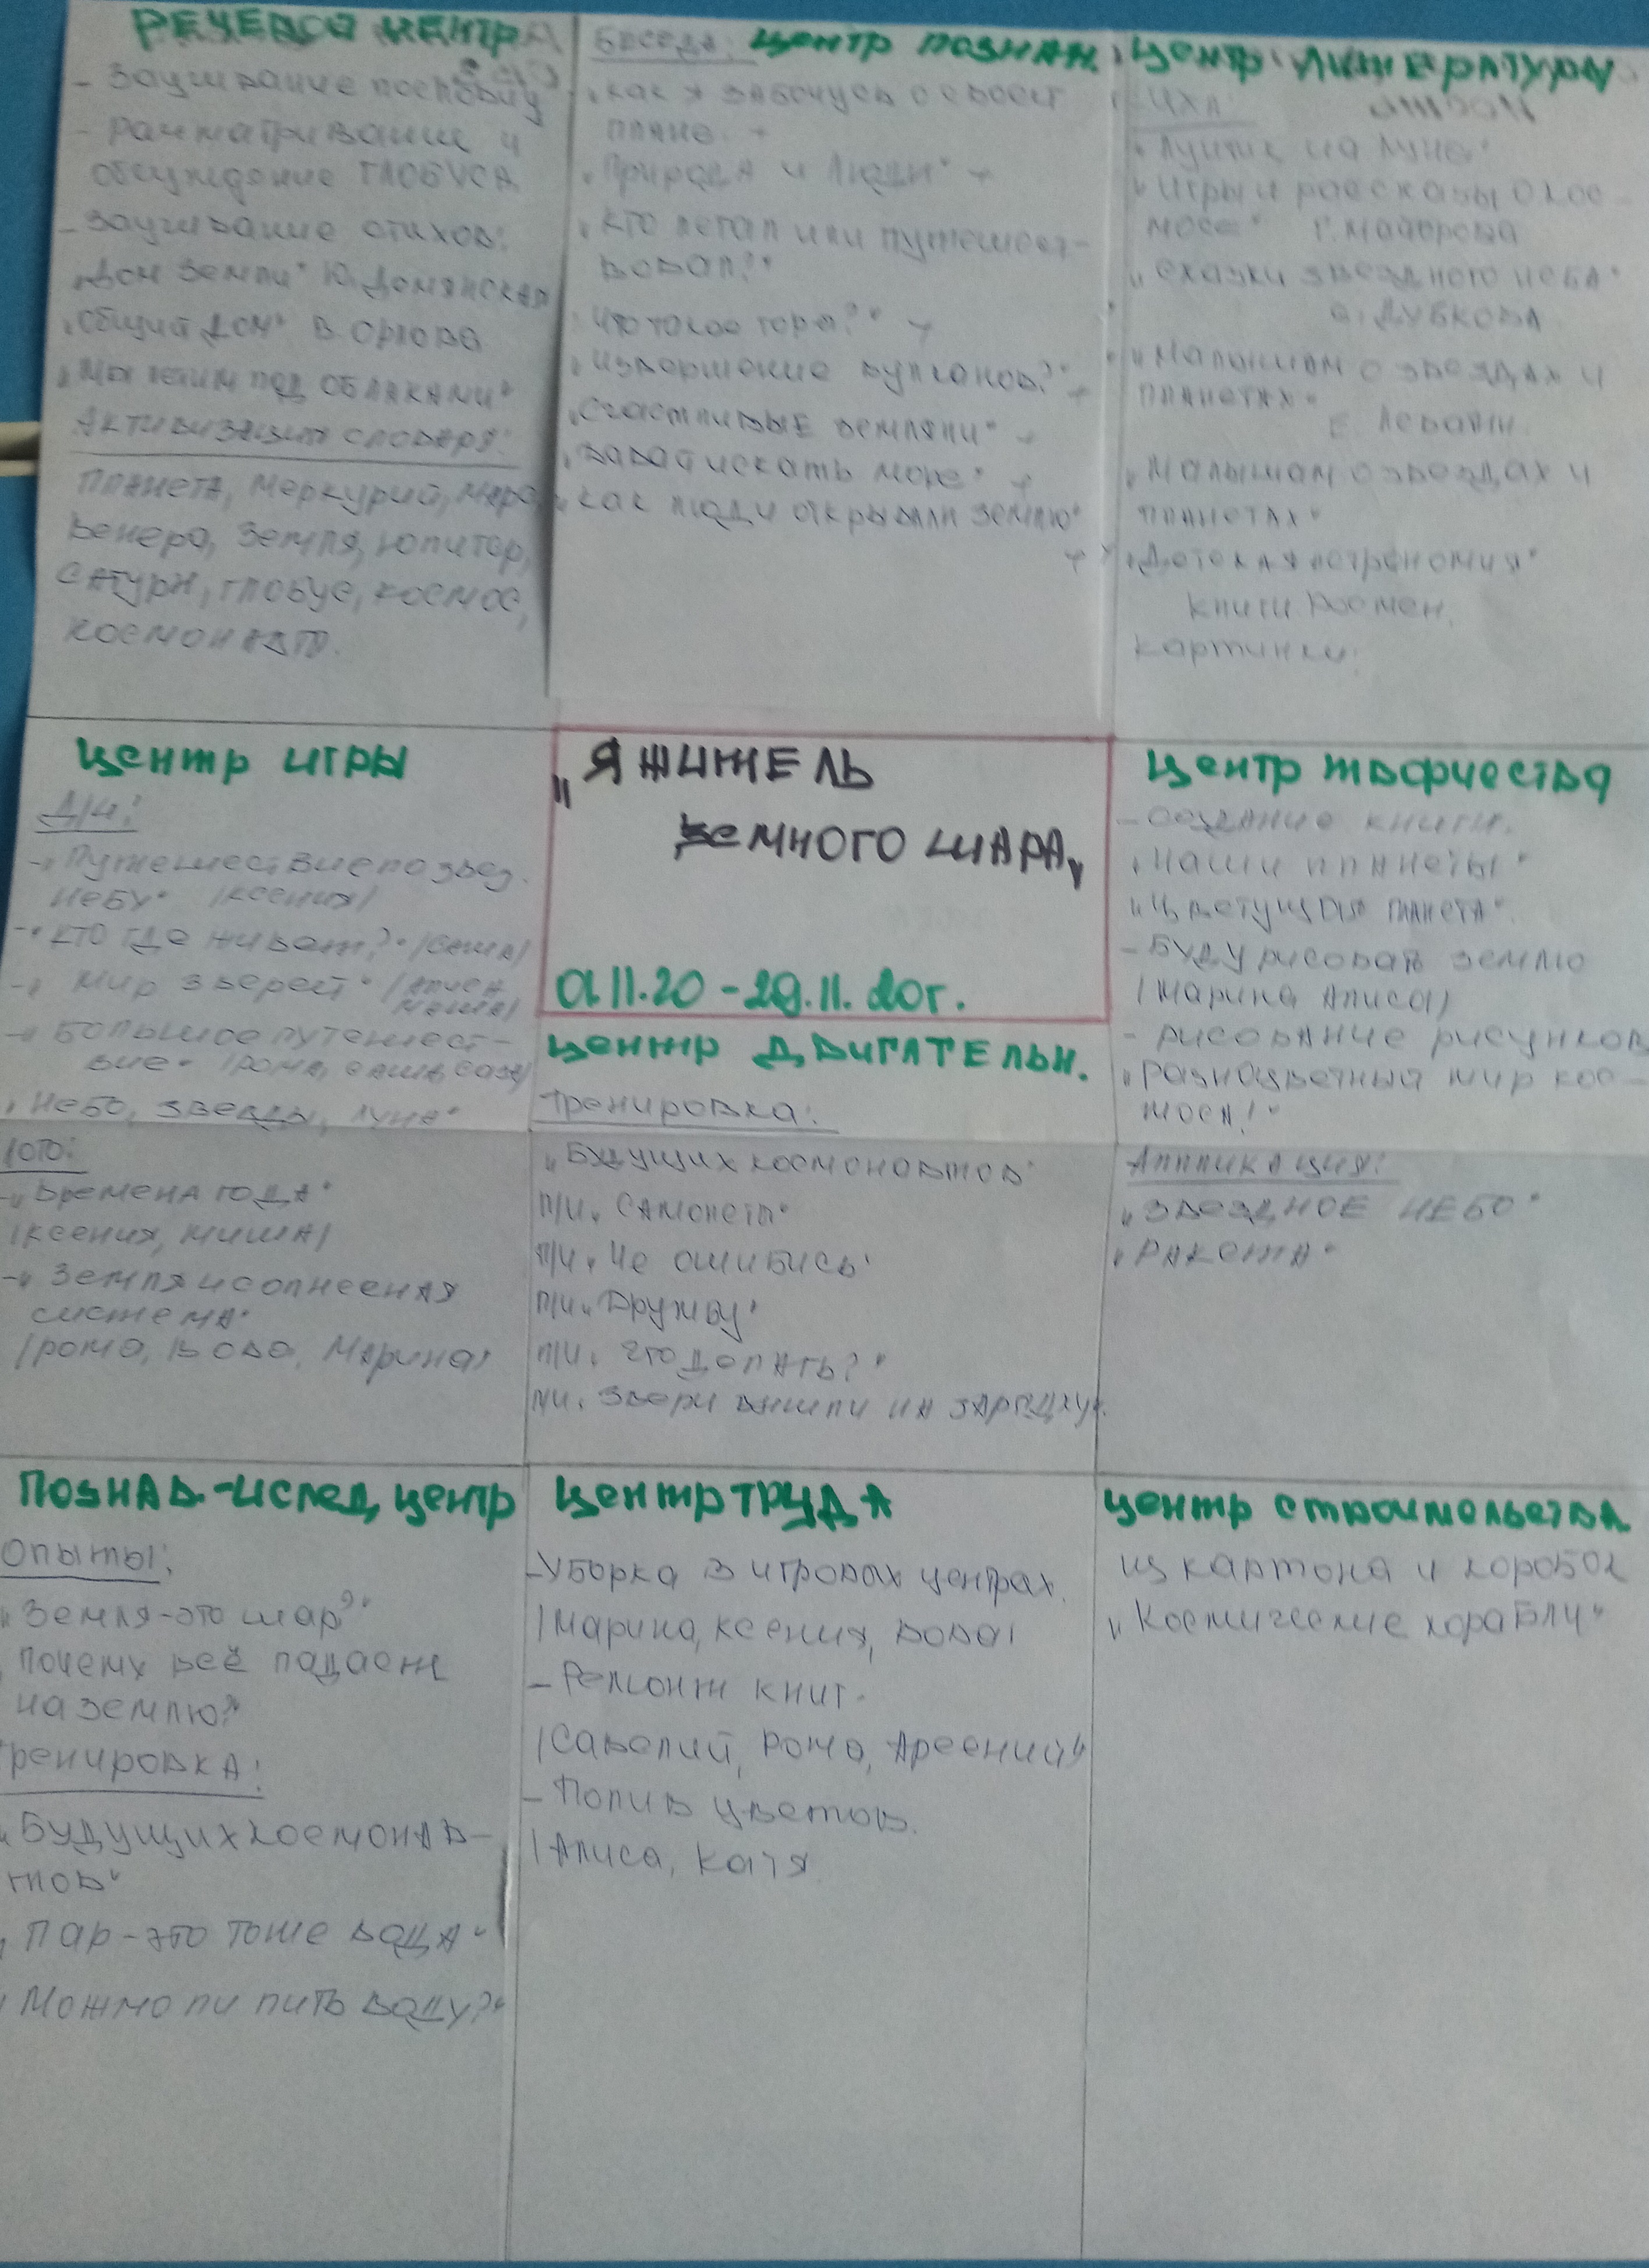 РЕЧЕВОЙ ЦЕНТР
- Заучивание пословиц
- рассматривание и
обсуждение ГЛОБУСА
- Заучивание стихов:
"Дом Земли" Ю. Домянская
"Общий ДОМ" В Орлова
"Мы летим под ОБЛАКАМИ"
Активизация словаря:
ПЛАНЕТА, Меркурий, Марс,
Венера, Земля, Юпитер,
САТУРН, глобус, космос,
космонавт.
Беседа: центр познан.
"как я забочусь о своей
плане.
"Природа и люди"
"кто летал или путешест-
вовал?"
"Что такое горы?"
"извершение вулканов?"
"Счастливые земляни"
"Давай искать море"
"как люди открывали землю"
Центр литературы
ЧХЛ:
"Лунтик на луне"
"Игры и рассказы о кос-
мосе" Г. Майорова
"Сказки звездного неба"
е. Дубкова
"Малышам о звездах и
планетах"
Е Левани
"Малышам о звездах и
планетах"
"Детская астрономия"
книги Росмен.
картинки.
Центр игры
Д/и:
- Путешествие по звез.
небу" /ксения/
- "кто где живет?" /саша/
- "Мир зверей" /Алиса,
Маша/
- "Большое путешест-
вие" /рома, саша,
"Небо, звезды, луна"
лото:
- "Времена года"
/ксения, миша/
- "Земля и солнесная
система"
/рома, Вова, Марина/
"Я ЖИТЕЛЬ
земного шара"
01.11.20 - 29.11.20г.
Центр ДВИГАТЕЛЬН.
тренировка:
"Будущих космонавтов"
п/и "Самолеты"
п/и "Не ошибись"
п/и "Дружбу"
п/и "Что делать?"
п/и "Звери вышли на зарядку".
Центр творчества
- создание книги.
"Наши планеты"
"Цветущая планета"
- Буду рисовать землю
/Марина, Алиса/
- рисование рисунков
"Разноцветный мир кос-
моса!"
Аппликация:
"Звездное небо"
"Ракета"
Познав.-ислед, центр
опыты:
"Земля-это шар?"
"Почему всё падает
на землю?"
тренировка:
"Будущих космонав-
тов"
"Пар-это тоже вода"
"Можно ли пить воду?"
Центр ТРУДА
- Уборка в игровых центрах.
/Марина, ксения, Вова/
- Ремонт книг.
/Савелий, Рома, Арсений/
- Полив цветов.
/Алиса, Катя
Центр строительства
из картона и коробок
"Космические корабли"